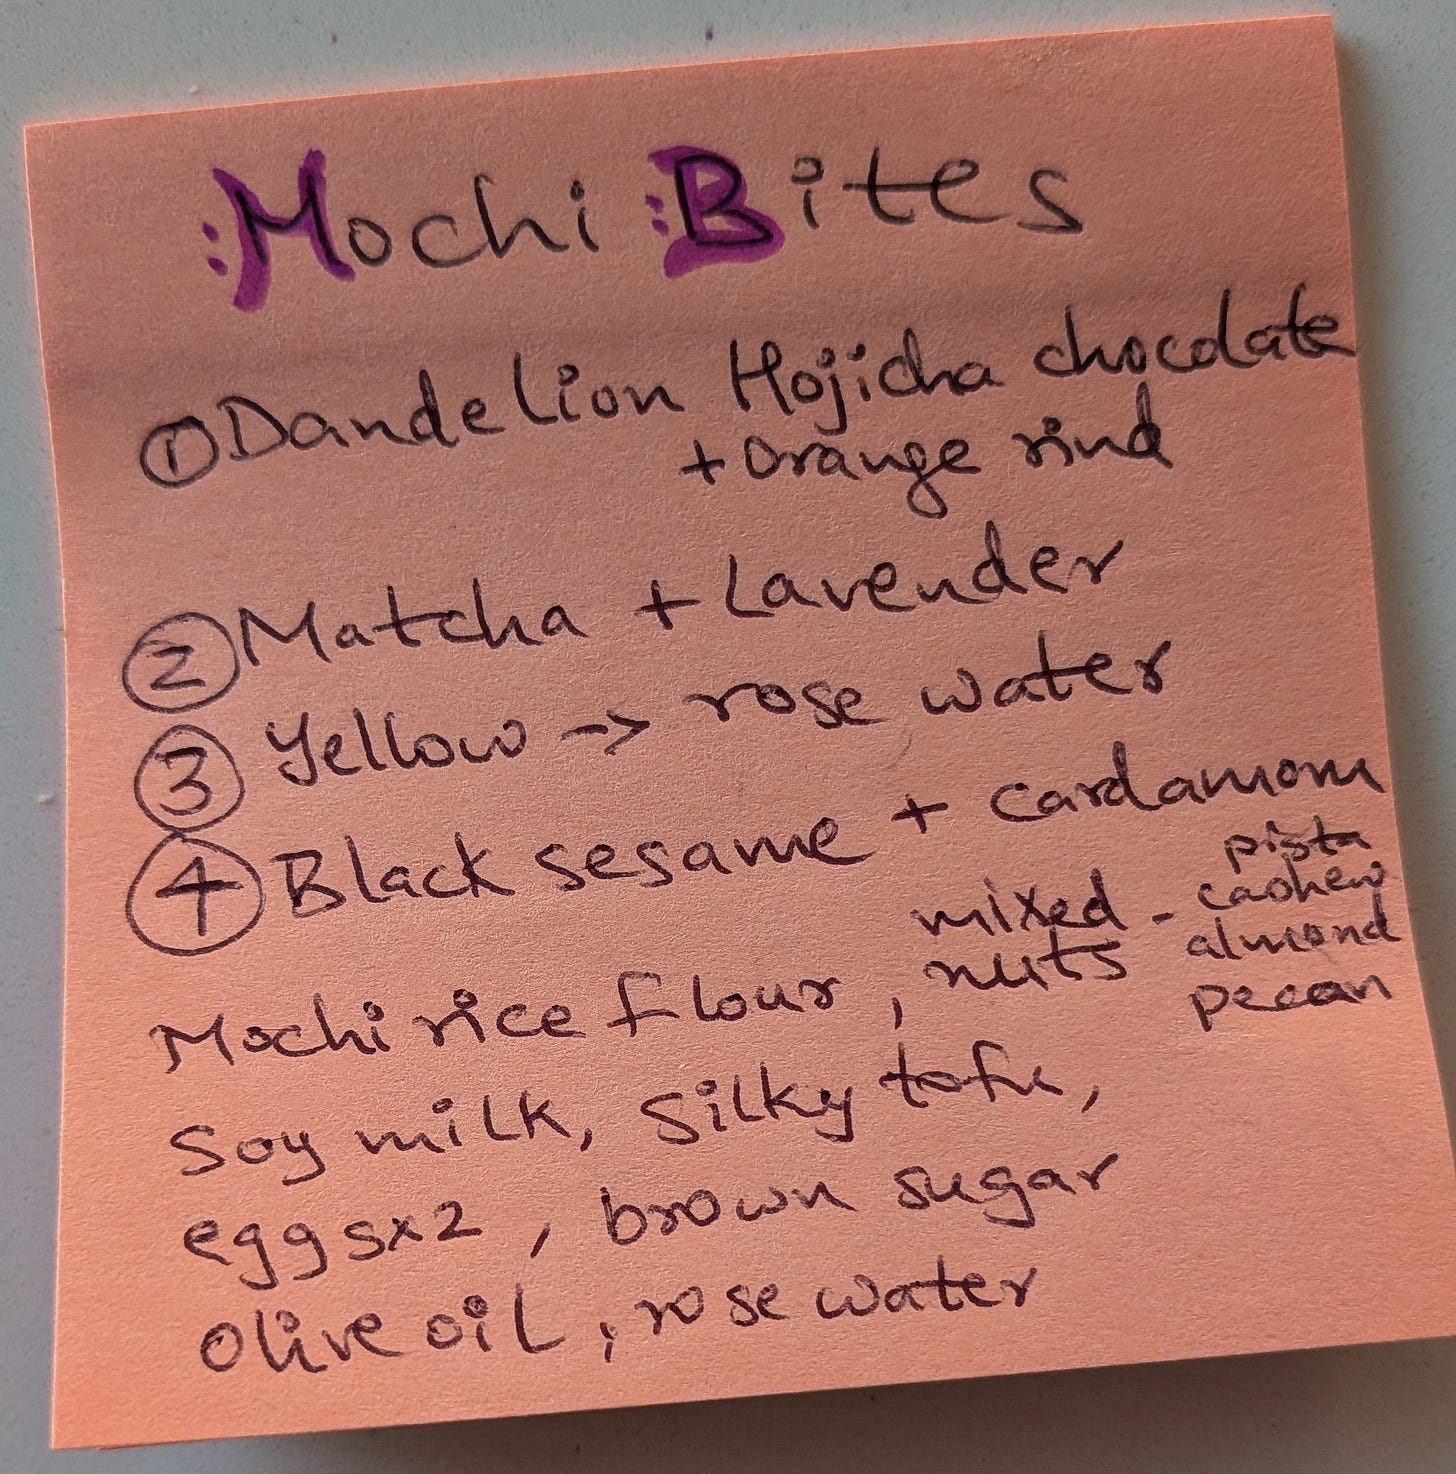 Mochi Bites
① Dandelion Hojicha chocolate
+ Orange rind
② Matcha + Lavender
③ Yellow -> rose water
④ Black sesame + cardamom
Mochi rice flour, mixed nuts - pista cashew almond pecan
Soy milk, Silky tofu,
eggs x2, brown sugar
Olive oil, rose water